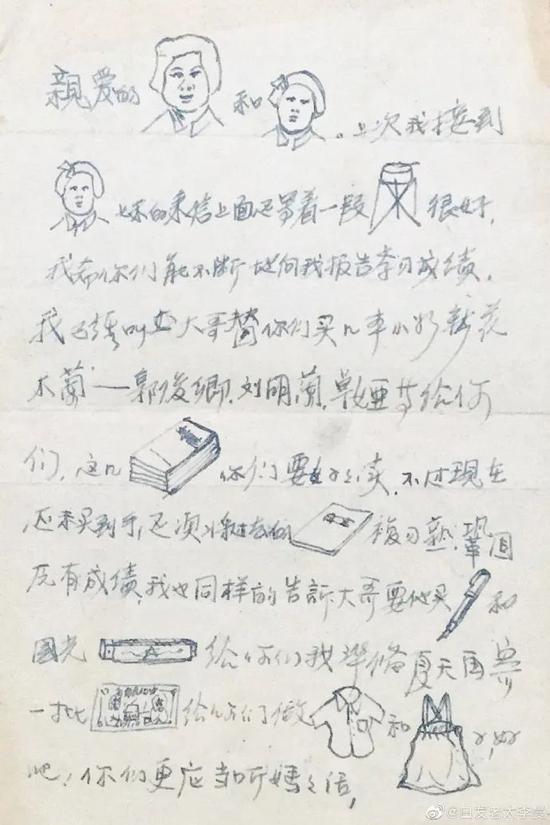 親爱的 和 。上次我接到
妹的来信上面还畫着一段 很好,
我希你们能不断地向我报告学习成绩,
我已经叫 大哥替你们买几本小 花
木蘭——郭俊卿、刘明蘭、 等给你
们,这几 你们要好好读,不过现在
还未买到手,还须将过去的 複习熟,鞏固
原有成绩,我也同样的告訴大哥要他买 和
國光 给你们我準備夏天再寄
一批 给你们做 和 好,好
吧!你们更应当听媽媽话,
@白发老大李